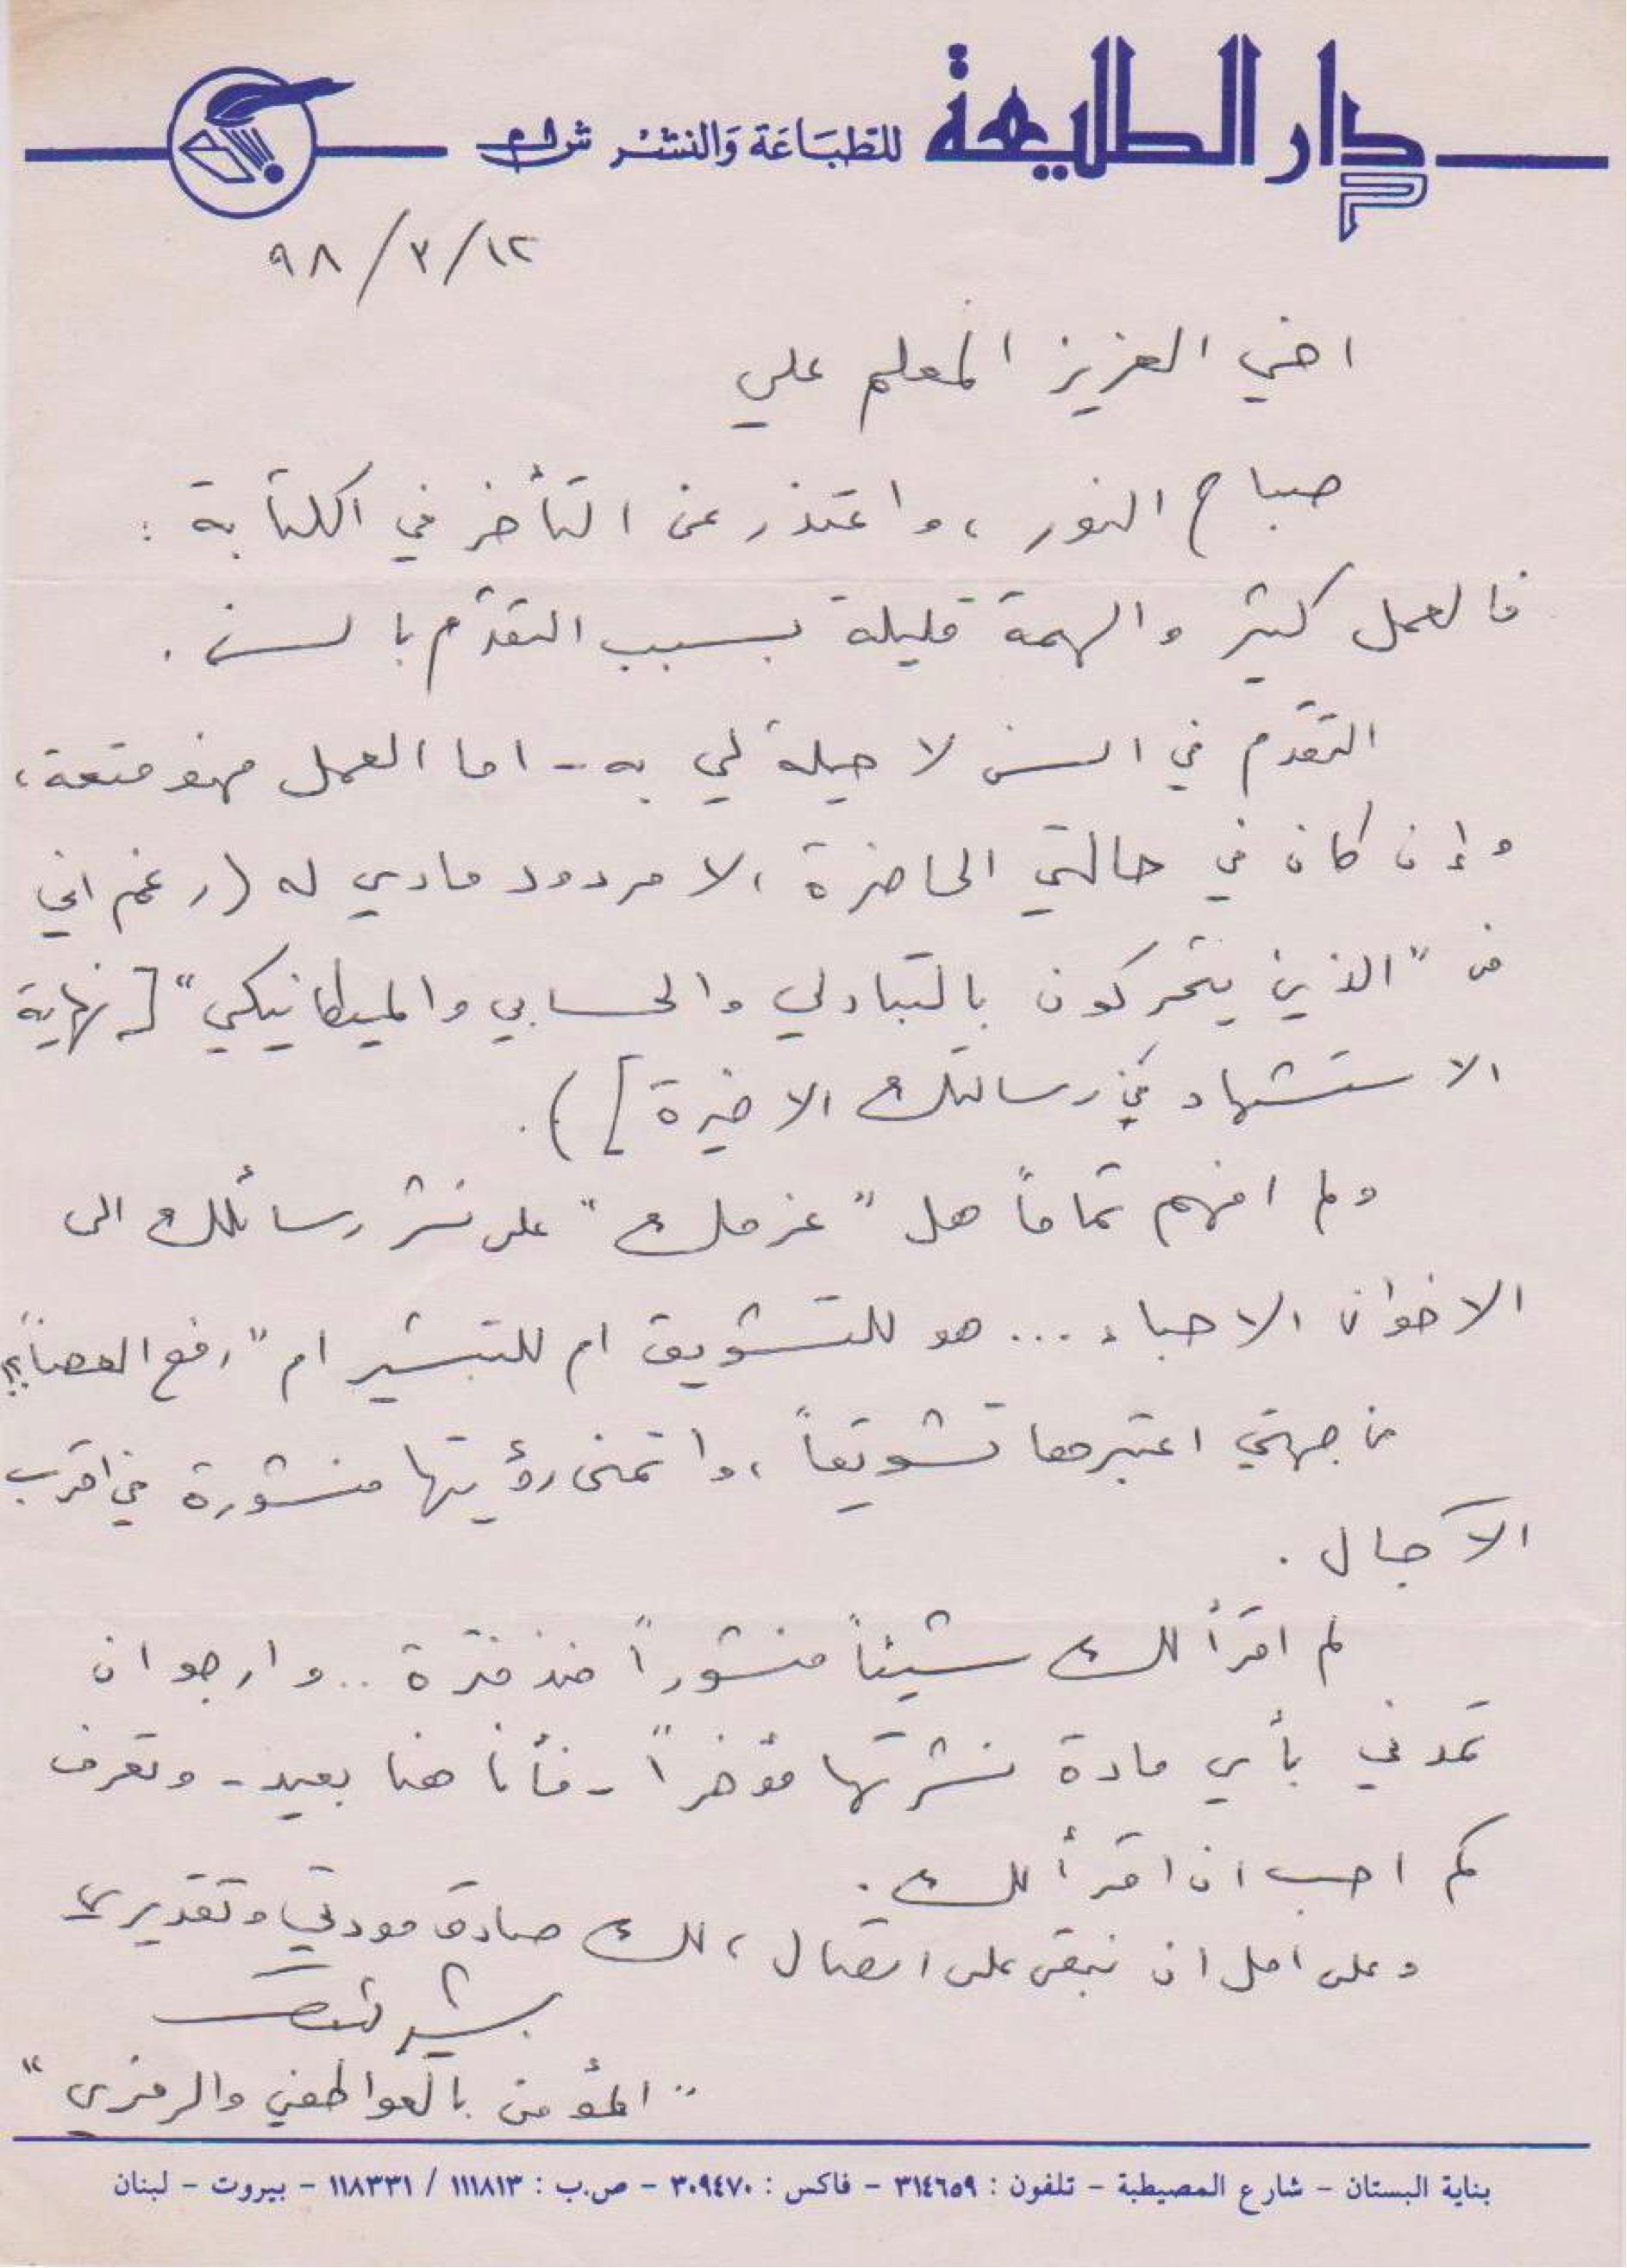 دار الطليعة للطباعة والنشر ش.م.ل
٩٨/٣/١٢
اخي العزيز المعلم علي
صباح النور، واعتذر عن التأخر في الكتابة :
فالعمل كثير والهمة قليلة بسبب التقدّم بالسن .
التقدم في السن لا حيلة لي به - اما العمل فهو متعة،
وإن كان في حالتي الحاضرة، لا مردود مادي له (رغم اني
من "الذين يتحركون بالتبادلي والحسابي والميكانيكي" [نهاية
الاستشهاد في رسالتك الاخيرة]).
ولم افهم تماماً هل "عزمك" على نشر رسائلك الى
الاخوان الاحباء ... هو للتشويق ام للتبشير ام "رفع العصا"؟!
من جهتي اعتبرها تشويقاً، واتمنى رؤيتها منشورة في اقرب
الآجال .
لم اقرأ لك شيئاً منشوراً منذ فترة .. وارجو ان
تمدني بأي مادة نشرتها مؤخراً - فأنا هنا بعيد - وتعرف
كم احب ان اقرأ لك .
وعلى امل ان نبقى على اتصال، لك صادق مودتي وتقديري
بشير
"المؤمن بالعواطفي والرمزي"
بناية البستان - شارع المصيطبة - تلفون : ٣١٤٦٥٩ - فاكس : ٣٠٩٤٧٠ - ص.ب : ١١١٨١٣ / ١١٨٣٣١ - بيروت - لبنان